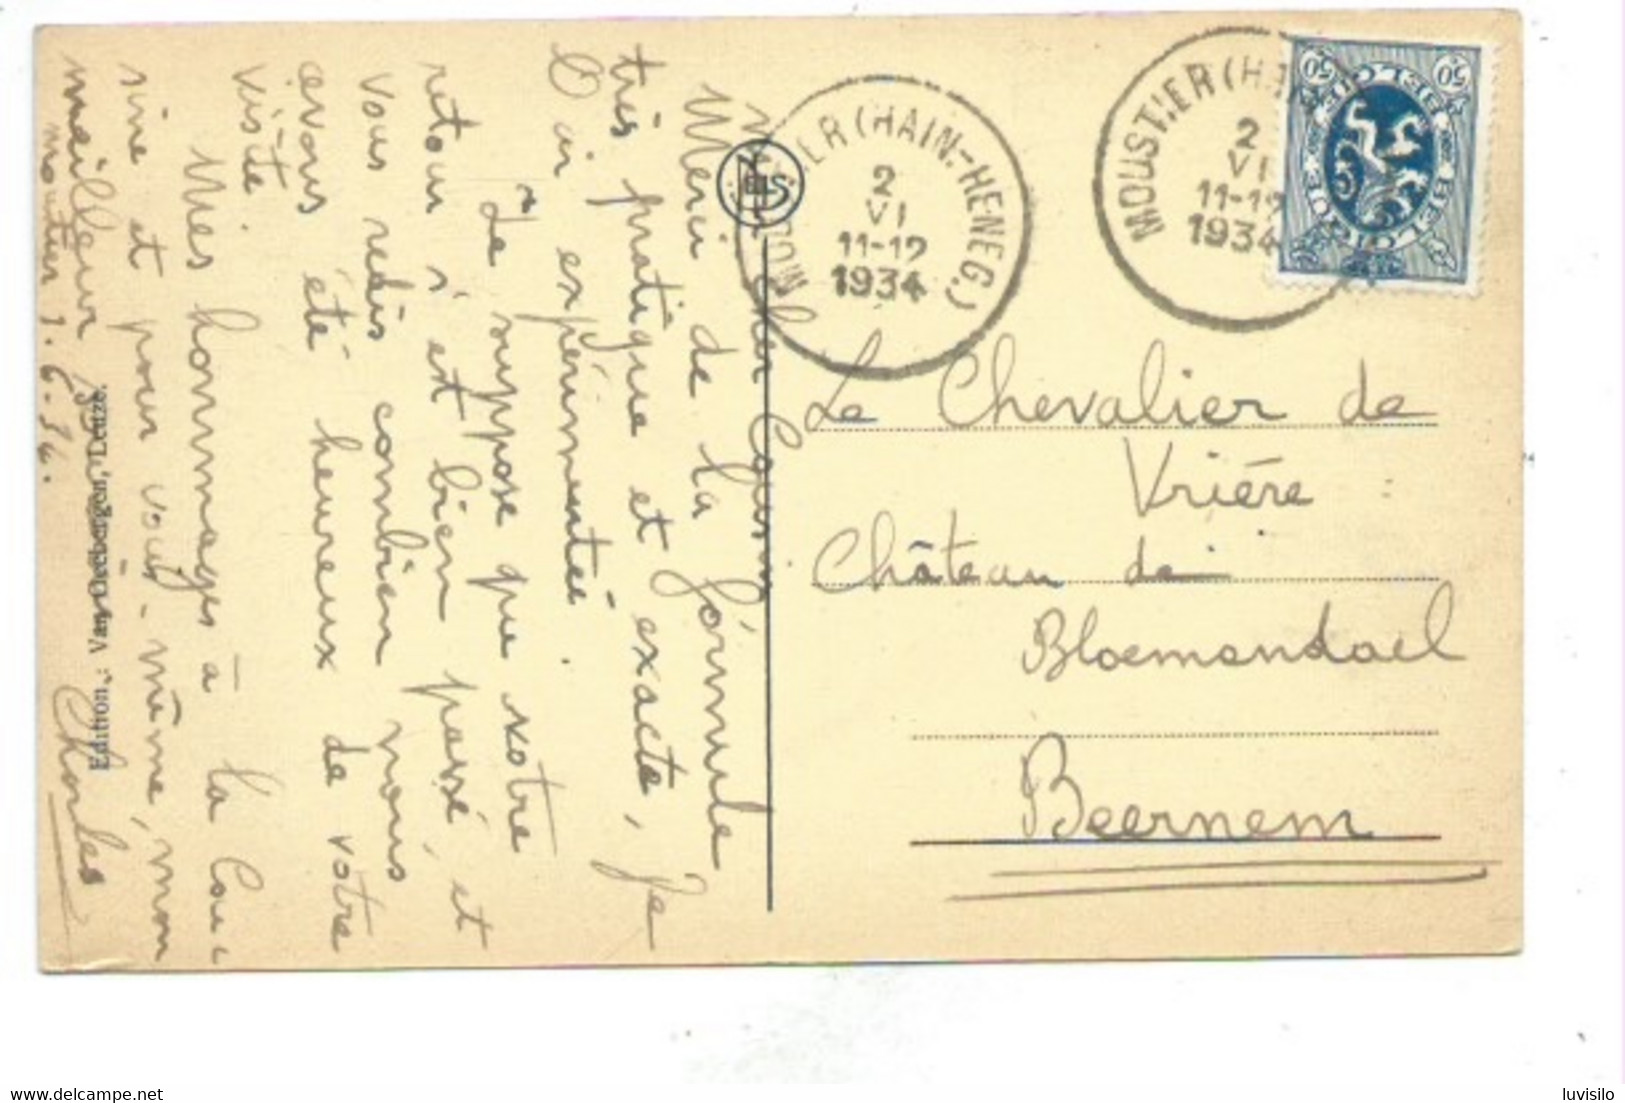 Mon cher Cousin
Merci de la formule
très pratique et exacte, je
l'ai expérimentée.
Je suppose que votre
retour s'est bien passé, et
vous redis combien nous
avons été heureux de votre
visite.
Mes hommages à la Cou-
sine et pour vous-même, mon
meilleur
Charles
Moustier 1.6.34.
Edition: Van Overbergen, Leuze.
NELS
MOUSTIER (HAIN.-HENEG.)
2
VI
11-12
1934
MOUSTIER (HAIN
2
VI
11-12
1934
50 50
BELGIQUE BELGIE
Le Chevalier de
Vrière
Château de
Bloemendael
Beernem
luvisilo